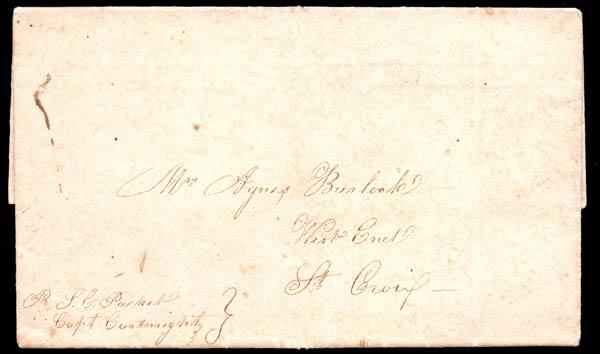 Mrs Agnes Burlock
West End
St Croix —
Pr S. C. Packet
Capt Cartwright